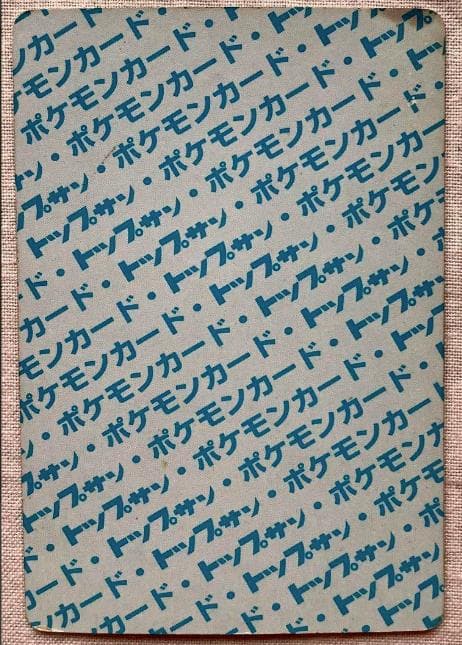 ンカード・
ポケモンカード・トッ
・ポケモンカード・トップサン
プサン・ポケモンカード・トップ
トップサン・ポケモンカード・
・トップサン・ポケモンカード
ド・トップサン・ポケモンカ
カード・トップサン・ポケモ
モンカード・トップサン・ポケ
ポケモンカード・トップサン・ポ
・ポケモンカード・トップサン
サン・ポケモンカード・トップサ
トップサン・ポケモンカード・ト
・トップサン・ポケモンカード・
ド・トップサン・ポケモンカ
ンカード・トップサン・ポケモ
カード・トップサン・ポ
ド・トップサン